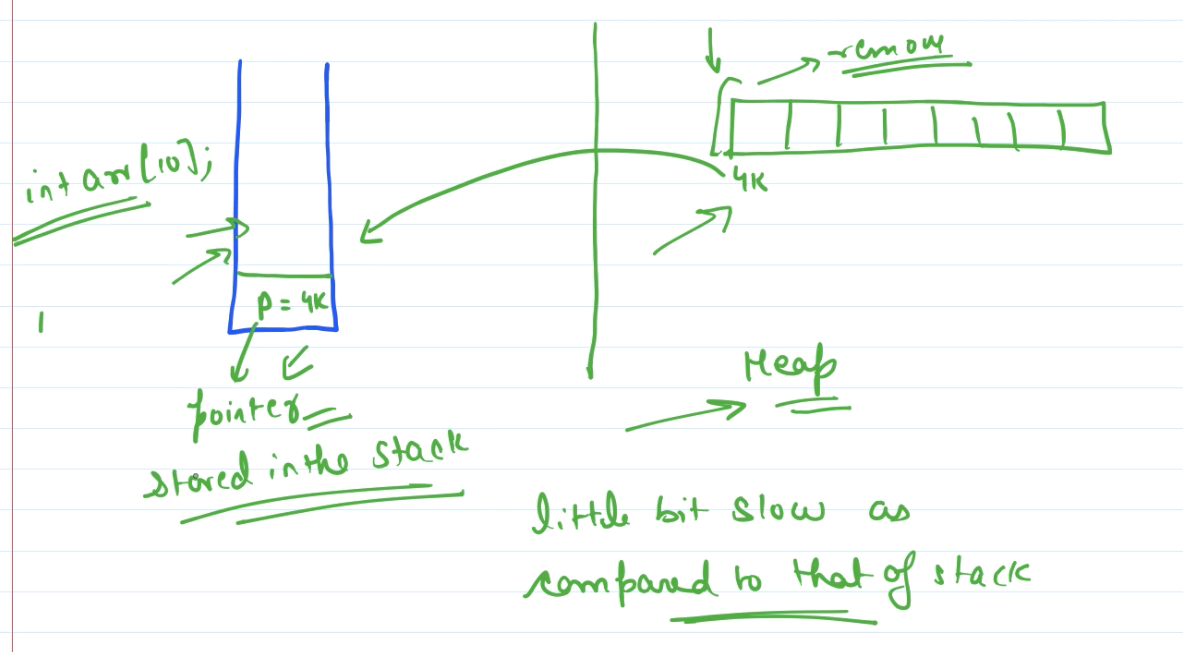 remove
int arr[10];
4K
P = 4K
Heap
pointer
stored in the stack
little bit slow as
compared to that of stack